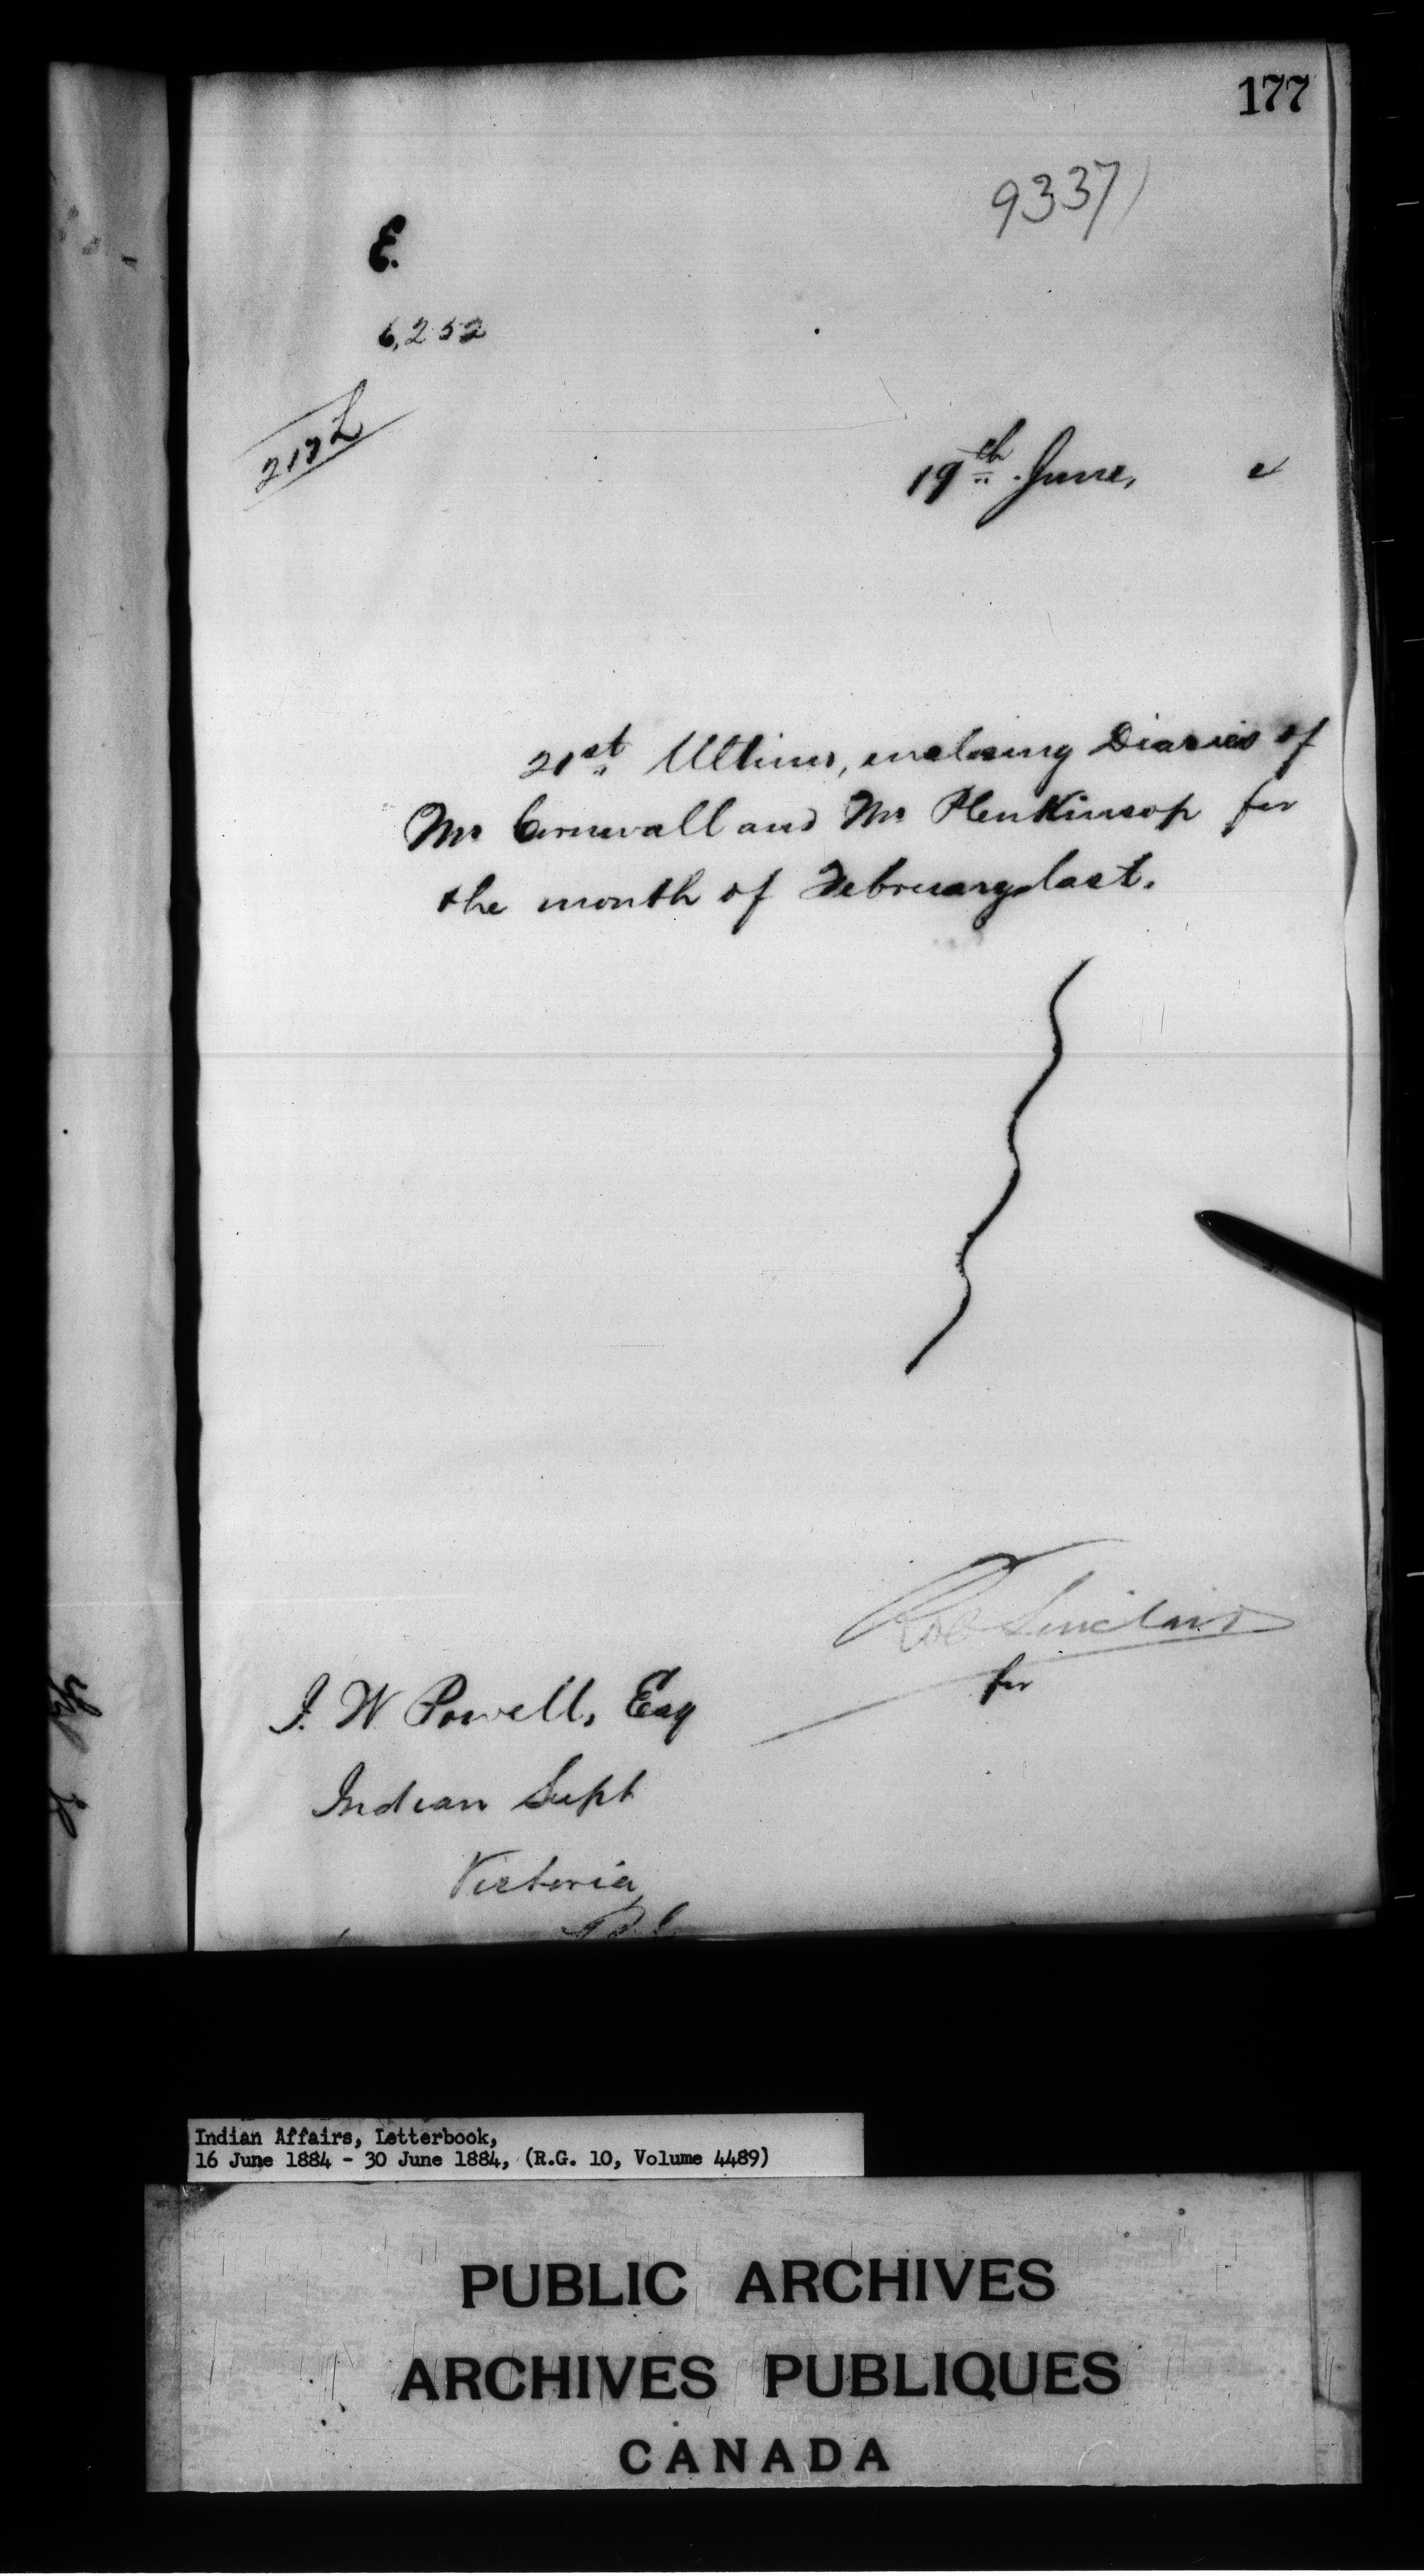 177
9337
E.
6,252
217 L
19th June, 4
21st Ultimo, enclosing Diaries of
Mr Cornwall and Mr Blenkinsop for
the month of February last.
Rob Sinclair
for
I. W. Powell, Esq
Indian Supt
Victoria
B.C.
Indian Affairs, Letterbook,
16 June 1884 - 30 June 1884, (R.G. 10, Volume 4489)
PUBLIC ARCHIVES
ARCHIVES PUBLIQUES
CANADA